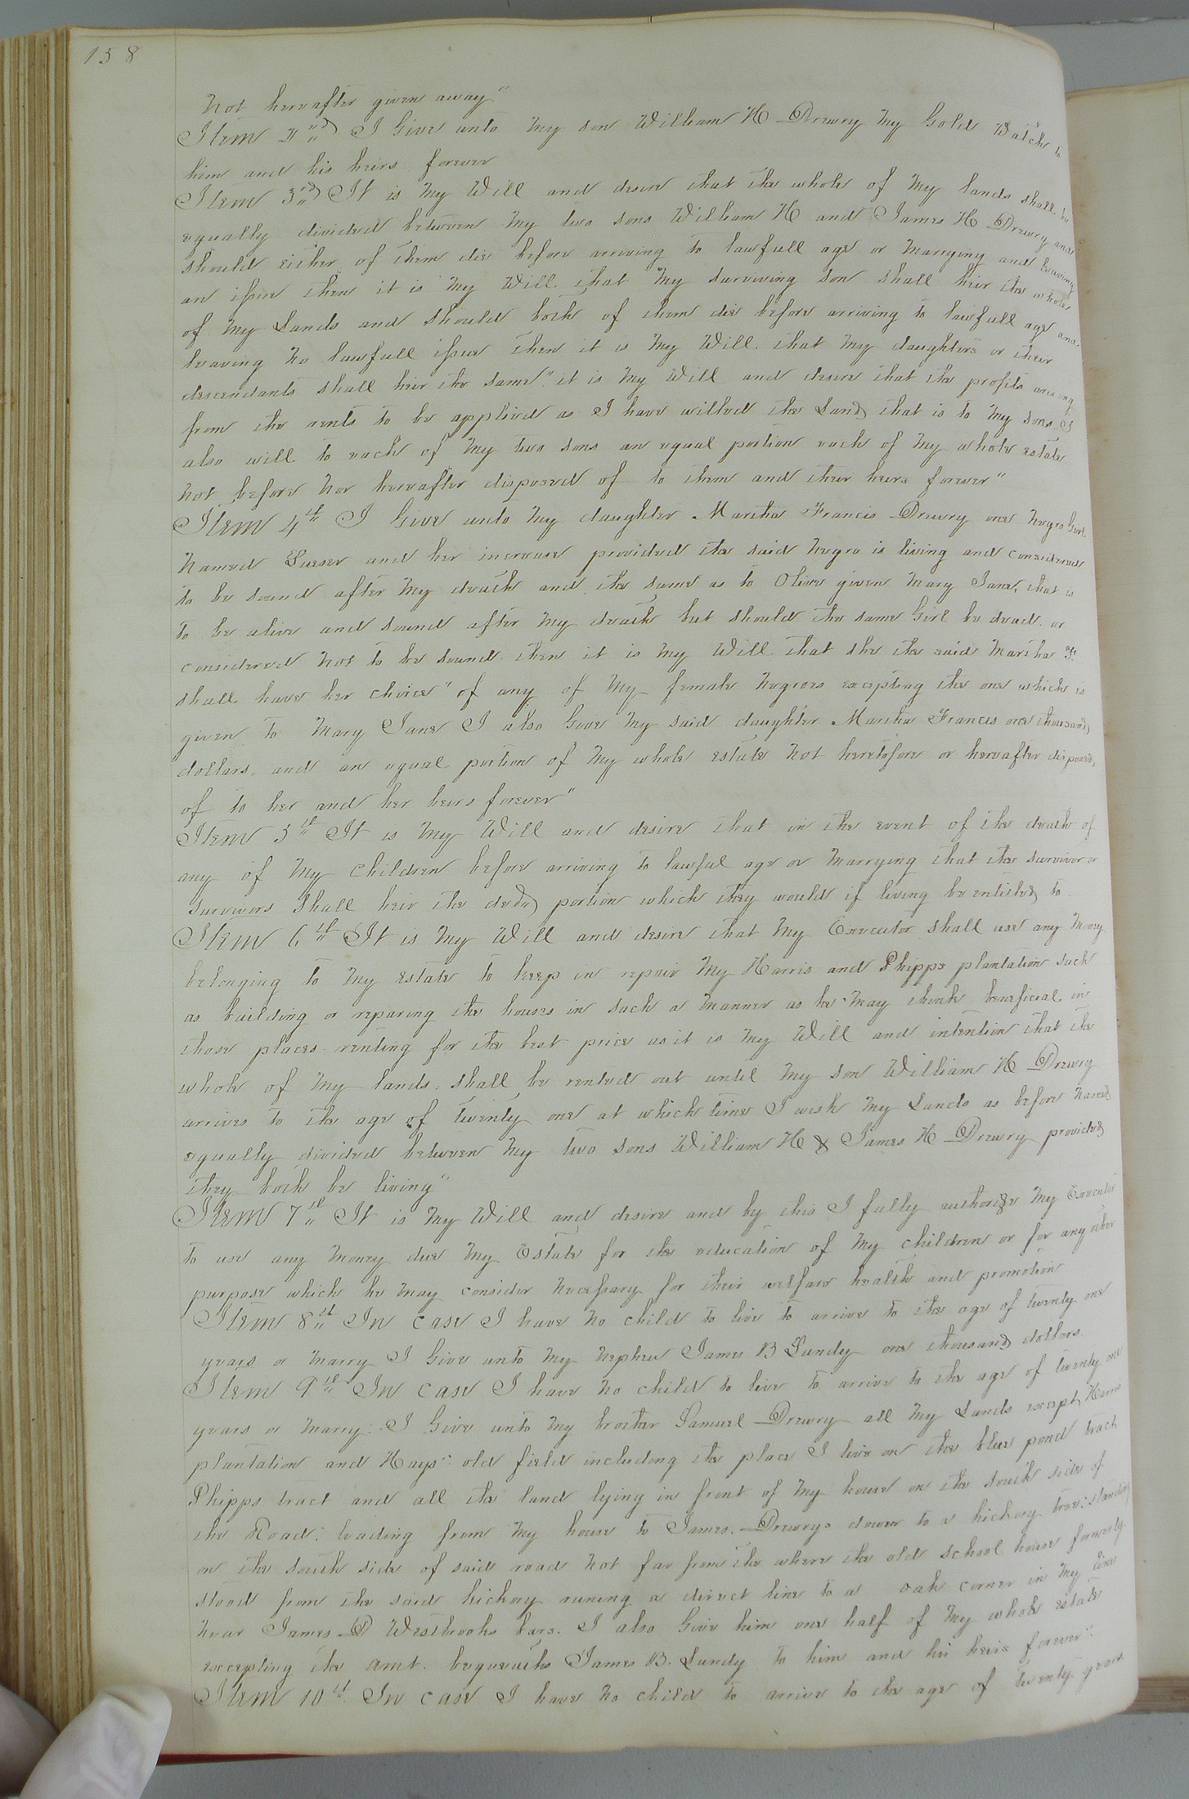 158
not hereafter given away"
Item 2nd I Give unto my son William H Drewry my Gold Watch to
him and his heirs forever
Item 3rd It is my Will and desire that the whole of my lands shall be
equally divided between my two sons William H and James H Drewry and
should either of them die before arriving to lawfull age or marrying and leaving
an issue then it is my Will that my surviving son shall heir the whole
of my Lands and should both of them die before arriving to lawfull age and
leaving no lawfull issue then it is my Will that my daughters or their
descendants shall heir the same" it is my Will and desire that the profits arising
from the rents to be applied as I have willed the Land that is to my sons I
also will to each of my two sons an equal portion each of my whole estate
not before nor hereafter disposed of to them and their heirs forever"
Item 4th I Give unto my daughter Martha Francis Drewry one negro Girl
named Susser and her increase provided the said negro is living and considered
to be sound after my death and the same as to Olive given Mary Jane, that is
to be alive and sound after my death but should the same Girl be dead or
considered not to be sound then it is my Will that she the said Martha F.
shall have her choice" of any of my female negroes excepting the one which is
given to Mary Jane I also Give my said daughter Martha Francis one thousand
dollars and an equal portion of my whole estate not heretofore or hereafter disposed
of to her and her heirs forever"
Item 5th It is my Will and desire that in the event of the death of
any of my children before arriving to lawful age or marrying that the survivor or
survivors shall heir the dedd portion which they would if living be entitled to
Item 6th It is my Will and desire that my Executor shall use any money
belonging to my estate to keep in repair my Harris and Phipps plantation such
as building or reparing the houses in such a manner as he may think beneficial in
those places renting for the best price as it is my Will and intention that the
whole of my lands shall be rented out until my son William H Drewry
arrives to the age of twenty one at which time I wish my Lands as before named
equally divided between my two sons William H & James H Drewry provided
they both be living"
Item 7th It is my Will and desire and by this I fully authorize my Executor
to use any money due my Estate for the education of my children or for any other
purpose which he may consider necessary for their welfare health and promotion
Item 8th In case I have no child to live to arrive to the age of twenty one
years or marry I Give unto my nephew James B Lundy one thousand dollars
Item 9th In case I have no child to live to arrive to the age of twenty one
years or marry I Give unto my brother Samuel Drewry all my Lands except Harris
plantation and Hays" old field including the place I live on the blue pond tract
Phipps tract and all the land lying in front of my house on the south side of
the Road leading from my house to James Drewrys down to a hickory tree standing
on the south side of said road not far from the where the old school house formerly
stood from the said hickory runing a direct line to a oak corner in my line
near James D Westbrooks bars. I also Give him one half of my whole estate
excepting the amt. bequeaths James B. Lundy to him and his heirs forever"
Item 10th In case I have no child to arrive to the age of twenty years